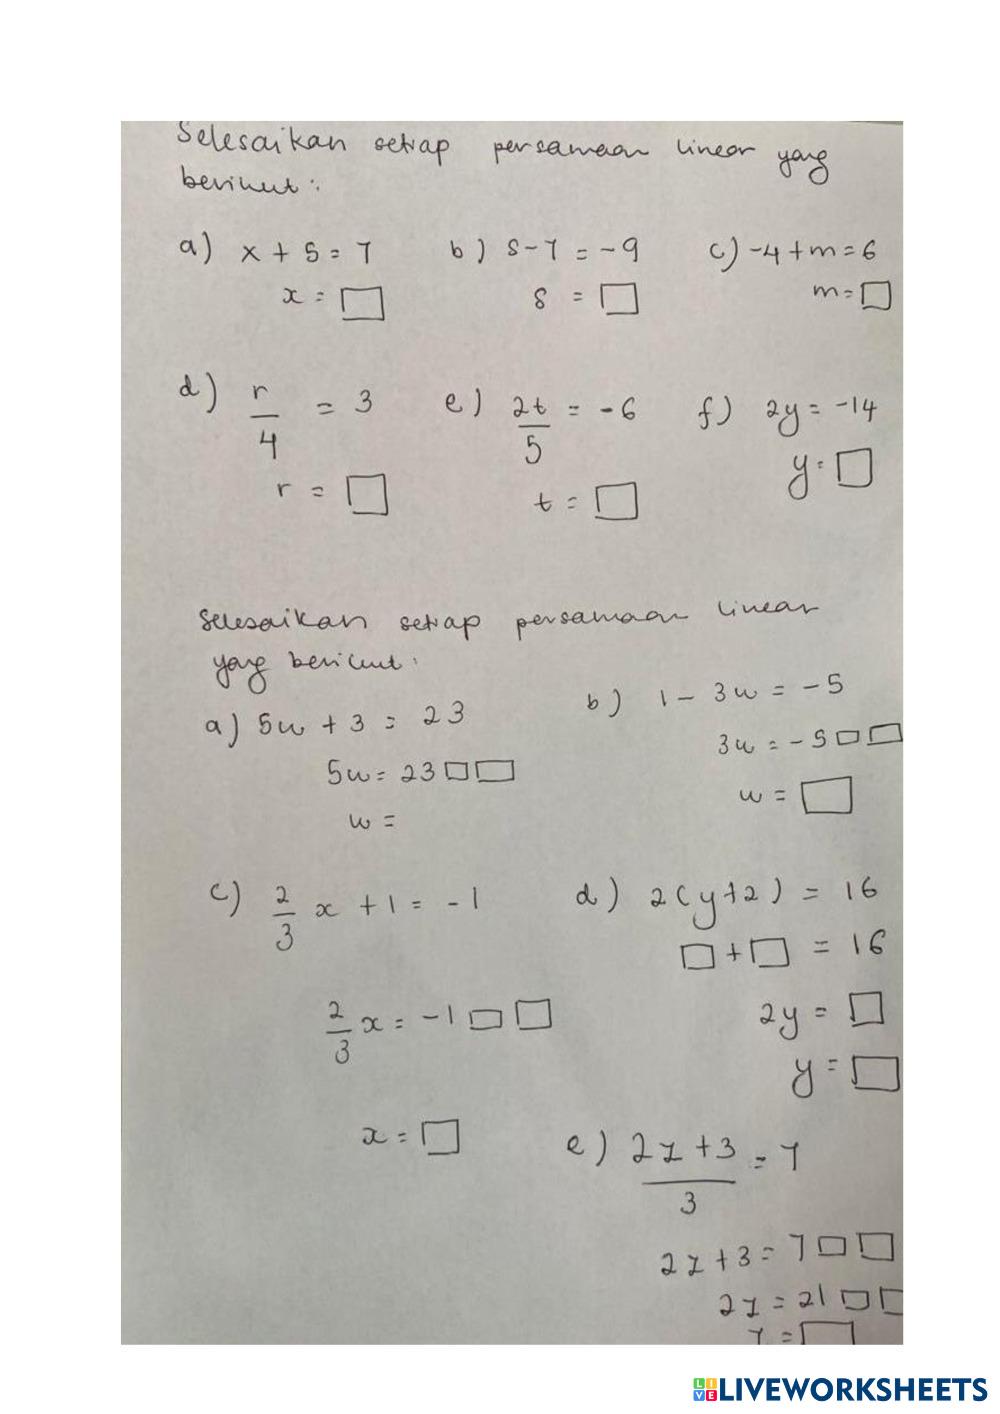 Selesaikan setiap persamaan linear yang
berikut :
a) x + 5 = 7 b) s - 7 = -9 c) -4 + m = 6
x = □ s = □ m = □
d) r/4 = 3 e) 2t/5 = -6 f) 2y = -14
r = □ t = □ y = □
Selesaikan setiap persamaan linear
yang berikut :
a) 5w + 3 = 23 b) 1 - 3w = -5
5w = 23 □ □ 3w = -5 □ □
w = w = □
c) 2/3 x + 1 = -1 d) 2(y + 2) = 16
□ + □ = 16
2/3 x = -1 □ □ 2y = □
y = □
x = □ e) (2z + 3)/3 = 7
2z + 3 = 7 □ □
2z = 21 □ □
z = □
LIVEWORKSHEETS